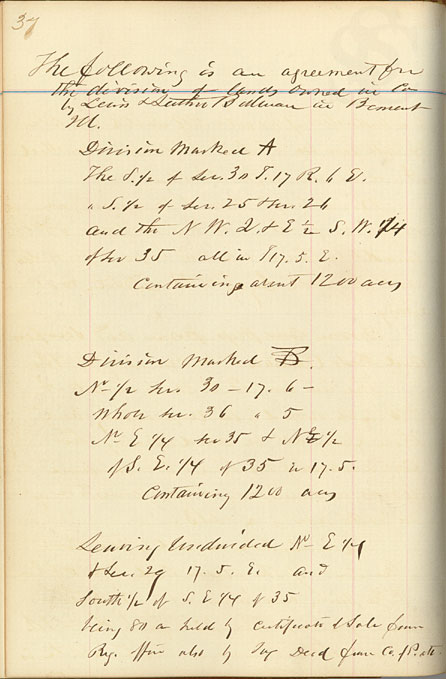 37
The following is an agreement for
the division of lands owned in Co
by Lewis & Luther Bodman in Bement
Ill.
Division Marked A
The S. 1/2 of Sec. 30 T. 17 R. 6 E.
" S. 1/2 of Sec. 25 & Sec. 26
and the N W. Q. & E 1/2 S. W. 1/4
of Sec 35 all in T 17. 5. E.
Containing about 1200 acres
Division Marked B.
N. 1/2 Sec. 30 - 17. 6 -
Whole Sec. 36 " 5
N. E 1/4 Sec 35 & N 1/2
of S. E. 1/4 of 35 in 17. 5.
Containing 1200 acres
Leaving Undivided N. E 1/4
of Sec. 29 17. 5. E. and
South 1/2 of S. E 1/4 of 35
being 80 a held by Certificate of Sale from
Reg. office also by Tax Deed from Co. of